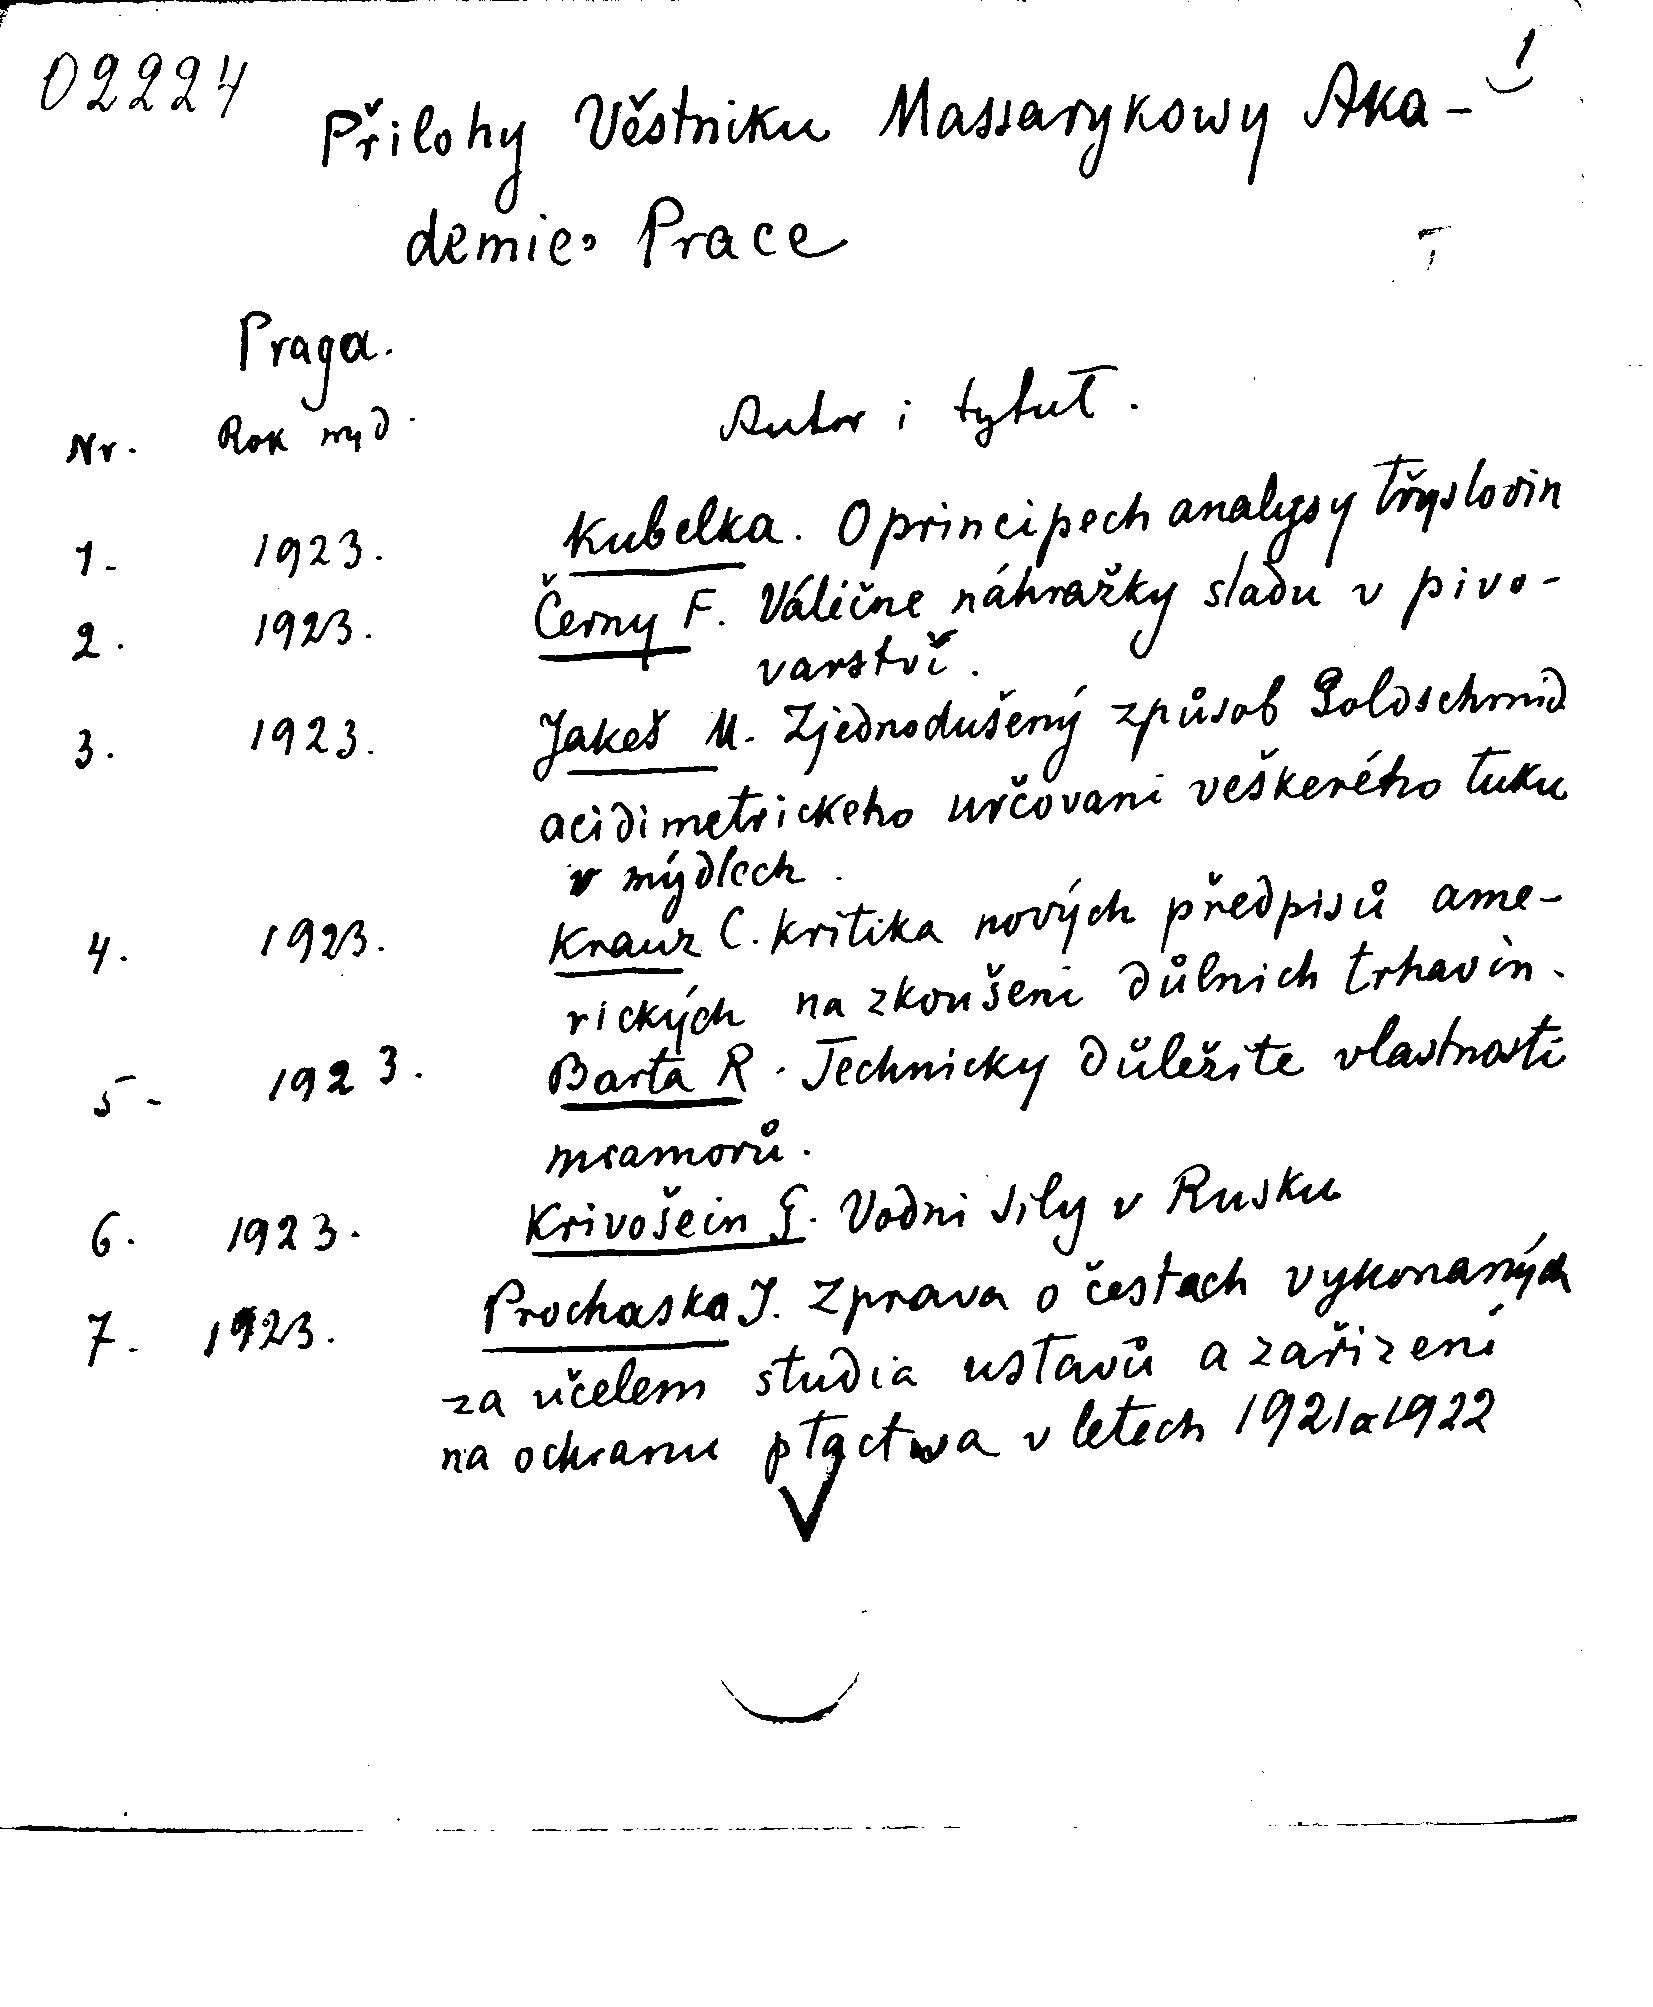 02224
1
Přilohy Věstniku Massarykowy Aka-
demie. Prace
Praga.
Nr. Rok wyd. Autor i tytuł.
1. 1923. Kubelka. O principech analysy třyslovin
2. 1923. Černy F. Váléčne náhražky sladu v pivo-
varství.
3. 1923. Jakeš M. Zjednodušený způsob Goldschmid
acidimetrickeho určovani veškerého tuku
v mýdlech.
4. 1923. Krauz C. Kritika nových předpisů ame-
rických na zkoušeni důlnich trhavin.
5. 1923. Barta R. Technicky důležite vlastnosti
mramorů.
6. 1923. Krivošein G. Vodni sily v Rusku
7. 1923. Prochaska J. Zprava o čestach vykonaných
za učelem studia ustavů a zařizeni
na ochranu ptactwa v letech 1921 a 1922